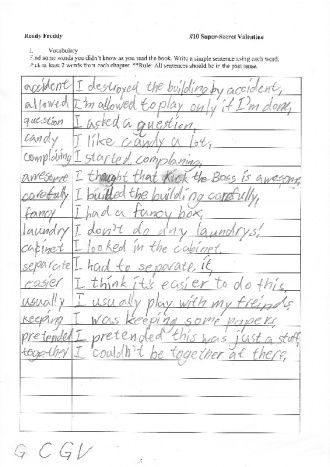 Ready Freddy #10 Super-Secret Valentine
1. Vocabulary
Find some words you didn't know as you read the book. Write a simple sentence using each word.
Pick at least 2 words from each chapter. **Rule: All sentences should be in the past tense.
accident I destroyed the building by accident,
allowed I'm allowed to play only if I'm done,
question I asked a question,
candy I like candy a lot,
complaining I started complaning,
awesome I thought that Kick the Boss is awesome,
carefully I builded the building carefully,
fancy I had a fancy box,
laundry I don't do any laundrys!
cabinet I looked in the cabinet.
separate I had to separate, it,
easier I think it's easier to do this,
usually I usually play with my freinds,
keeping I was keeping some papers,
pretended I pretended this was just a stuff,
together I couldn't be together at there,
G C G V